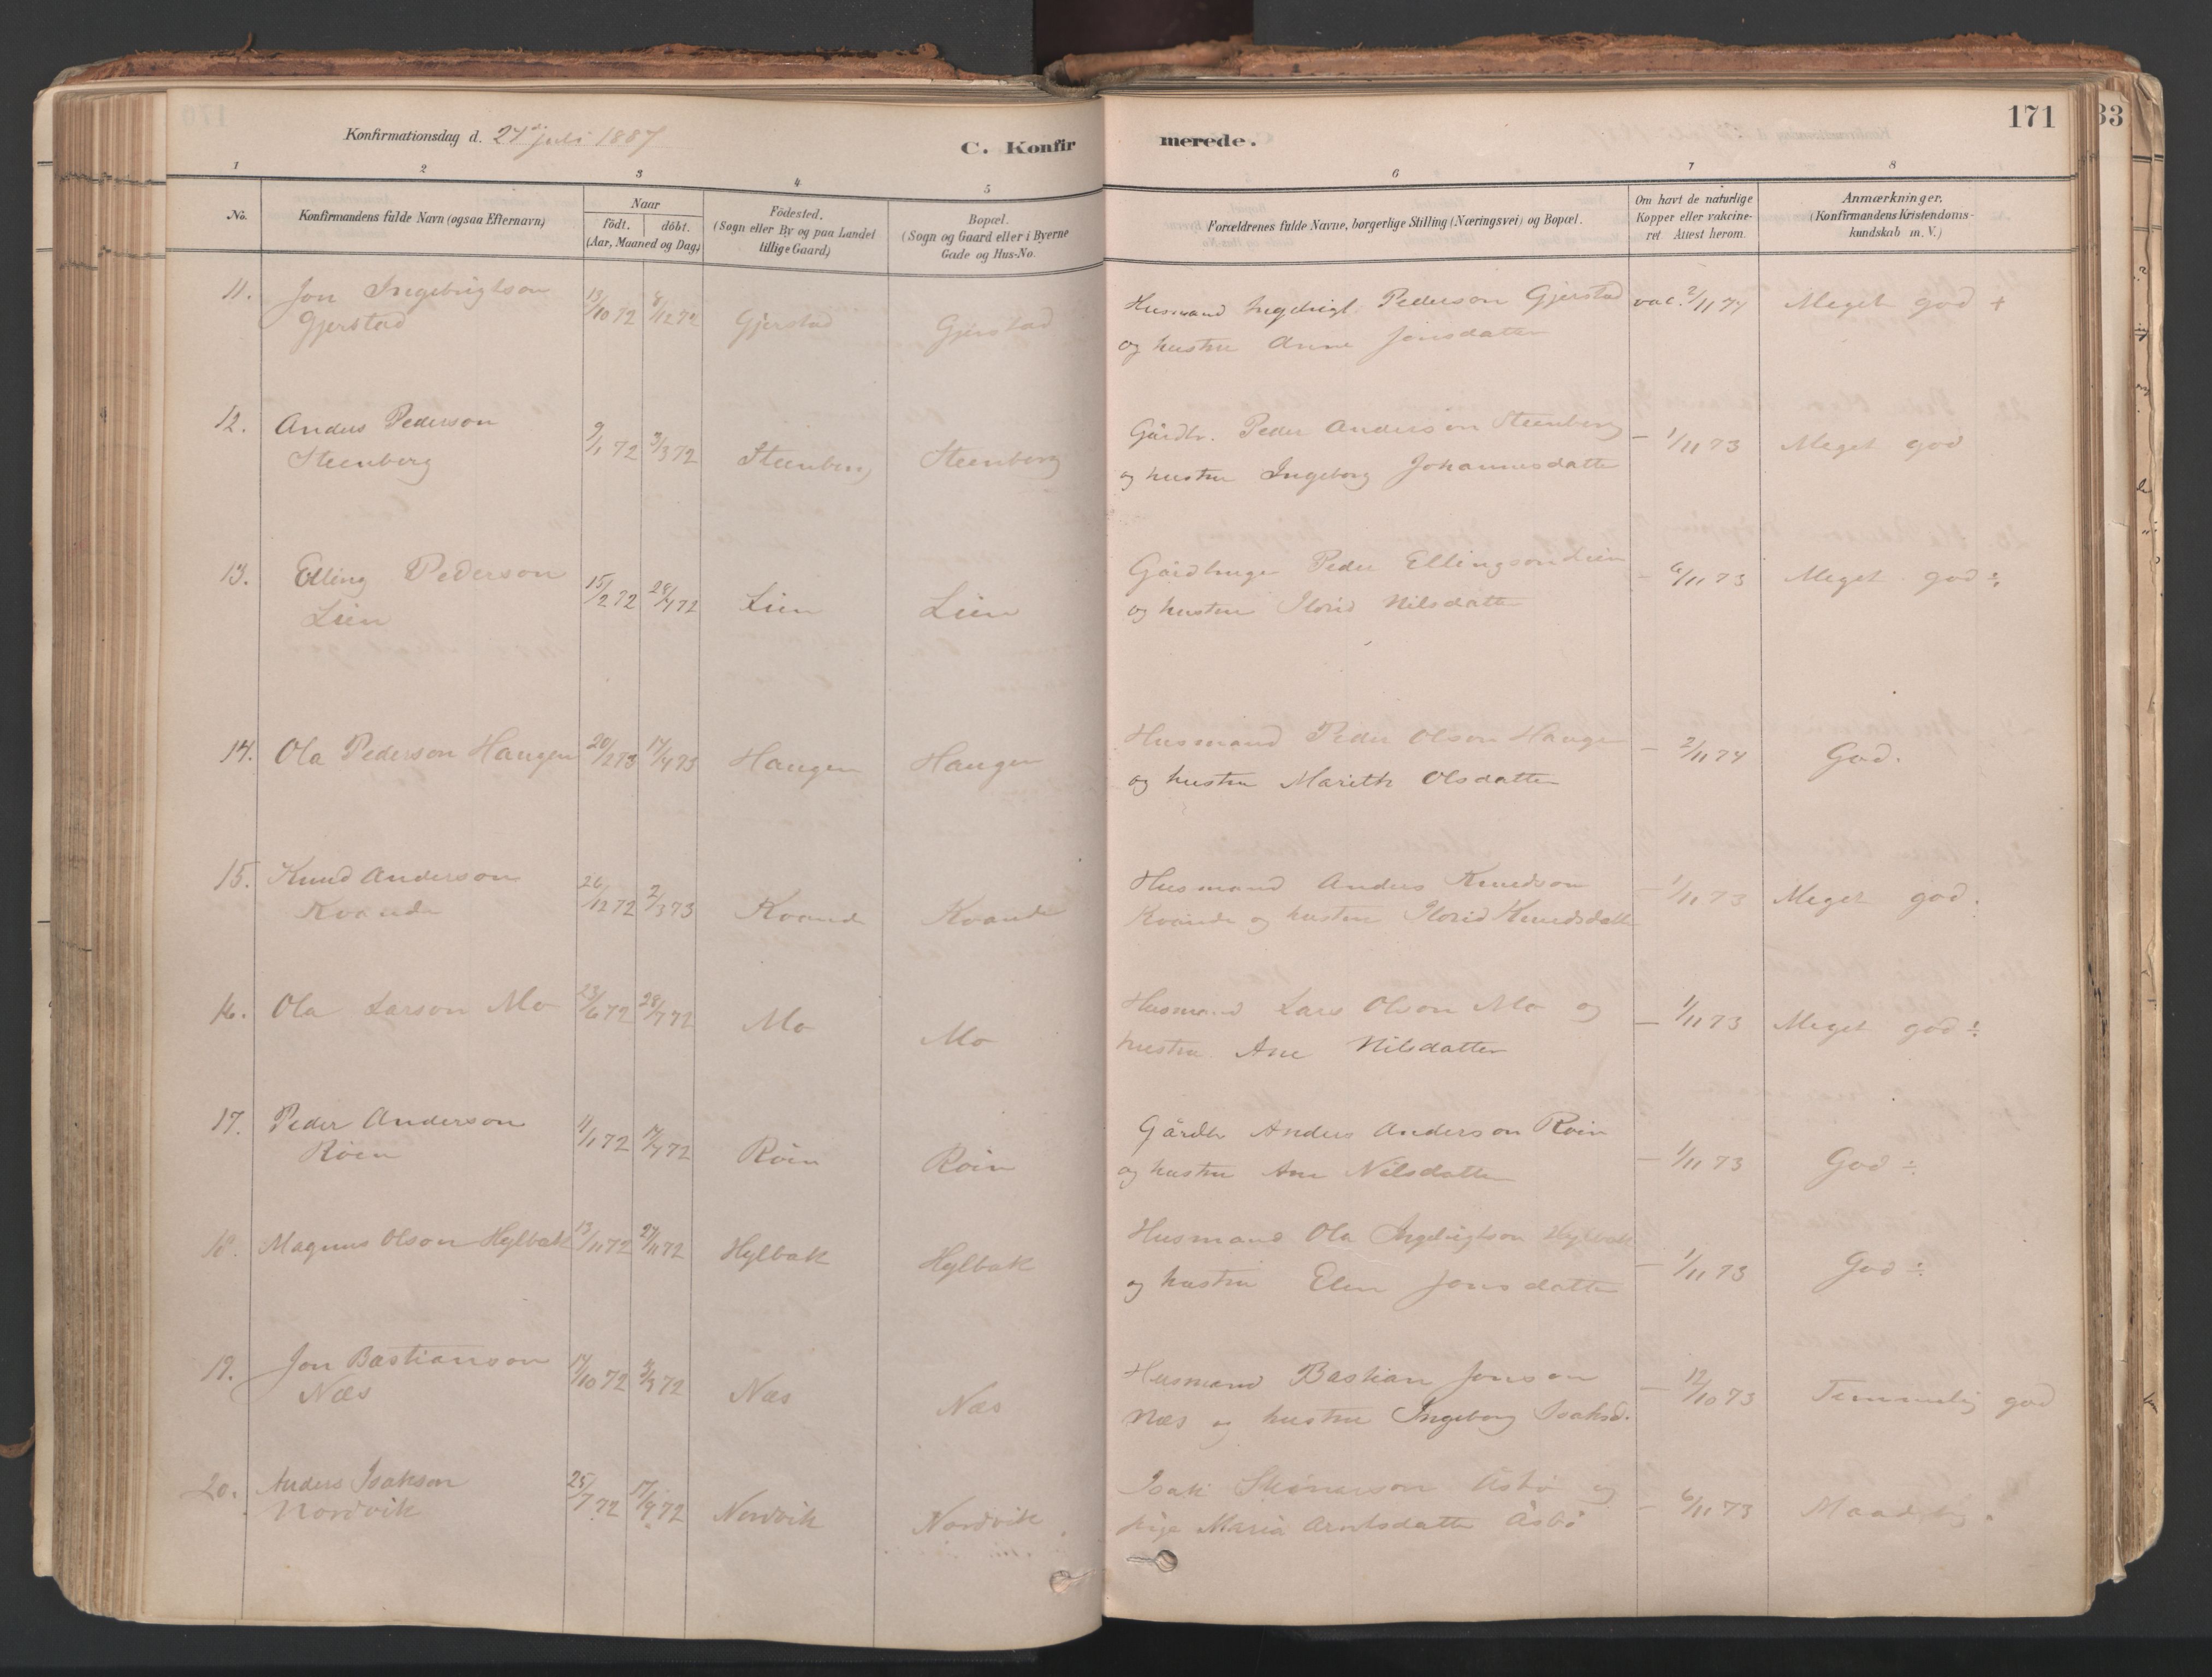 171
33
Konfirmationsdag d. 24de juli 1887
C. Konfirmerede.
1 2 3 4 5 6 7 8
No.
Konfirmandens fulde Navn (ogsaa Efternavn)
Naar
födt. döbt.
(Aar, Maaned og Dag)
Födested.
(Sogn eller By og paa Landet
tillige Gaard)
Bopæl.
(Sogn og Gaard eller i Byerne
Gade og Hus-No.
Forældrenes fulde Navne, borgerlige Stilling (Næringsvei) og Bopæl.
Om havt de naturlige
Kopper eller vakcine-
ret Attest herom.
Anmærkninger.
(Konfirmandens Kristendoms-
kundskab m. V.)
11. Jon Ingebrigtson 13/10 72 8/12 72 Gjerstad Gjerstad Husmand Ingebrigt Pederson Gjerstad vac. 2/11 74 Meget god +
Gjerstad og hustru Anne Jonsdatter
12. Anders Pederson 9/1 72 3/3 72 Steenberg Steenberg Gårdbr. Peder Anderson Steenberg – 1/11 73 Meget god
Steenberg og hustru Ingeborg Johannesdatter
13. Elling Pederson 15/2 72 28/4 72 Lien Lien Gårdbruger Peder Ellingson Lien – 6/11 73 Meget god ÷
Lien og hustru Ilorid Nilsdatter
14. Ola Pederson Haugen 20/2 73 14/4 73 Haugen Haugen Husmand Peder Olson Haugen – 2/11 74 God.
og hustru Marith Olsdatter
15. Knud Anderson 26/12 72 2/3 73 Kvande Kvande Husmand Anders Knudson – 1/11 73 Meget god.
Kvande Kvande og hustru Ilorid Knudsdatter
16. Ola Larson Mo 23/6 72 28/7 72 Mo Mo Husmand Lars Olson Mo og – 1/11 73 Meget god ÷
hustru Ane Nilsdatter
17. Peder Anderson 11/1 72 Röen Röen Gårdbr Anders Anderson Röen – 1/11 73 God ÷
Röen og hustru Ane Nilsdatter
18. Magnus Olson Hylbak 13/11 72 24/11 72 Hylbak Hylbak Husmand Ola Ingebrigtson Hylbak – 1/11 73 God ÷
og hustru Elen Jonsdatter
19. Jon Bastianson 14/10 72 3/3 72 Næs Næs Husmand Bastian Jonson – 12/10 73 Temmelig god
Næs Næs og hustru Ingeborg Isaksd.
20. Anders Isakson 25/7 72 17/9 72 Nordvik Nordvik Isak Åsbö og – 6/11 73 Maadelig.
Nordvik pige Maria Arntsdatter Åsbö